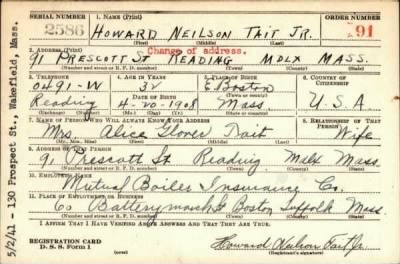 SERIAL NUMBER 1. NAME (Print) ORDER NUMBER
2586 HOWARD NEILSON TAIT JR. 91
(First) (Middle) (Last)
2. ADDRESS (Print) Change of address.
91 PRESCOTT ST READING MDLX MASS.
(Number and street or R. F. D. number) (Town) (County) (State)
3. TELEPHONE 4. AGE IN YEARS 5. PLACE OF BIRTH 6. COUNTRY OF CITIZENSHIP
0491-W 32 E. Boston
DATE OF BIRTH
Reading 4-20-1908 Mass. U.S.A.
(Exchange) (Number) (Mo.) (Day) (Yr.) (State or country)
7. NAME OF PERSON WHO WILL ALWAYS KNOW YOUR ADDRESS 8. RELATIONSHIP OF THAT PERSON
Mrs. Alice Glover Tait Wife
(Mr., Mrs., Miss) (First) (Middle) (Last)
9. ADDRESS OF THAT PERSON
91 Prescott St Reading Mdlx Mass.
(Number and street or R. F. D. number) (Town) (County) (State)
10. EMPLOYER'S NAME
Mutual Boiler Insurance Co.
11. PLACE OF EMPLOYMENT OR BUSINESS
60 Batterymarch St Boston Suffolk Mass
(Number and street or R. F. D. number) (Town) (County) (State)
I AFFIRM THAT I HAVE VERIFIED ABOVE ANSWERS AND THAT THEY ARE TRUE.
REGISTRATION CARD
D. S. S. Form 1 (over)
Howard Neilson Tait Jr.
(Registrant's signature)
5/2/41 - 130 Prospect St., Wakefield, Mass.